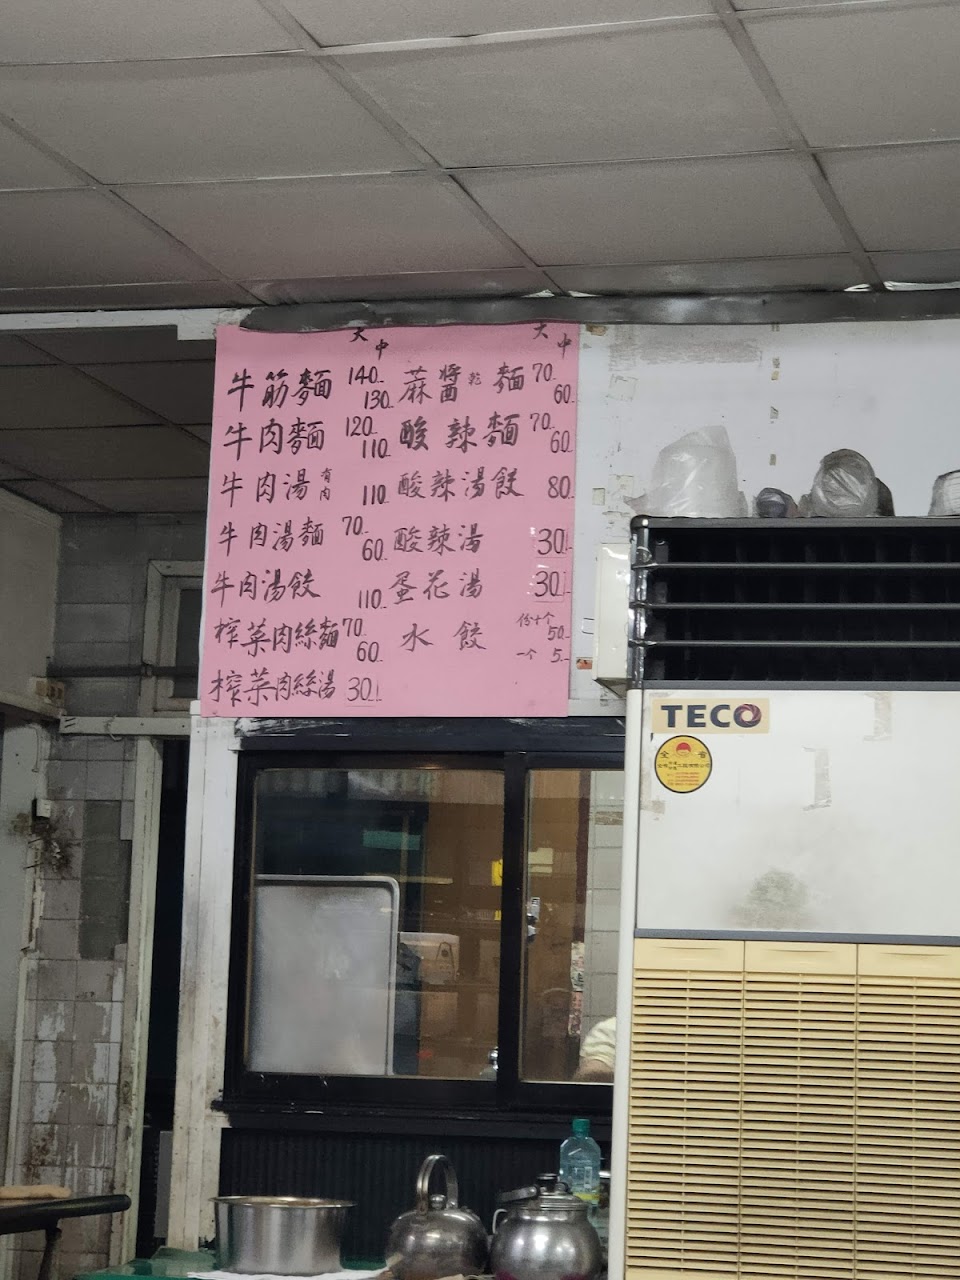 大 中
牛筋麵 140.- 130.-
牛肉麵 120.- 110.-
牛肉湯 有肉 110.-
牛肉湯麵 70.- 60.-
牛肉湯餃 110.-
榨菜肉絲麵 70.- 60.-
榨菜肉絲湯 30.-
大 中
蔴醬乾麵 70.- 60.-
酸辣麵 70.- 60.-
酸辣湯餃 80.-
酸辣湯 30.-
蛋花湯 30.-
水餃 份十个 50.-
一个 5.-
TECO
全省